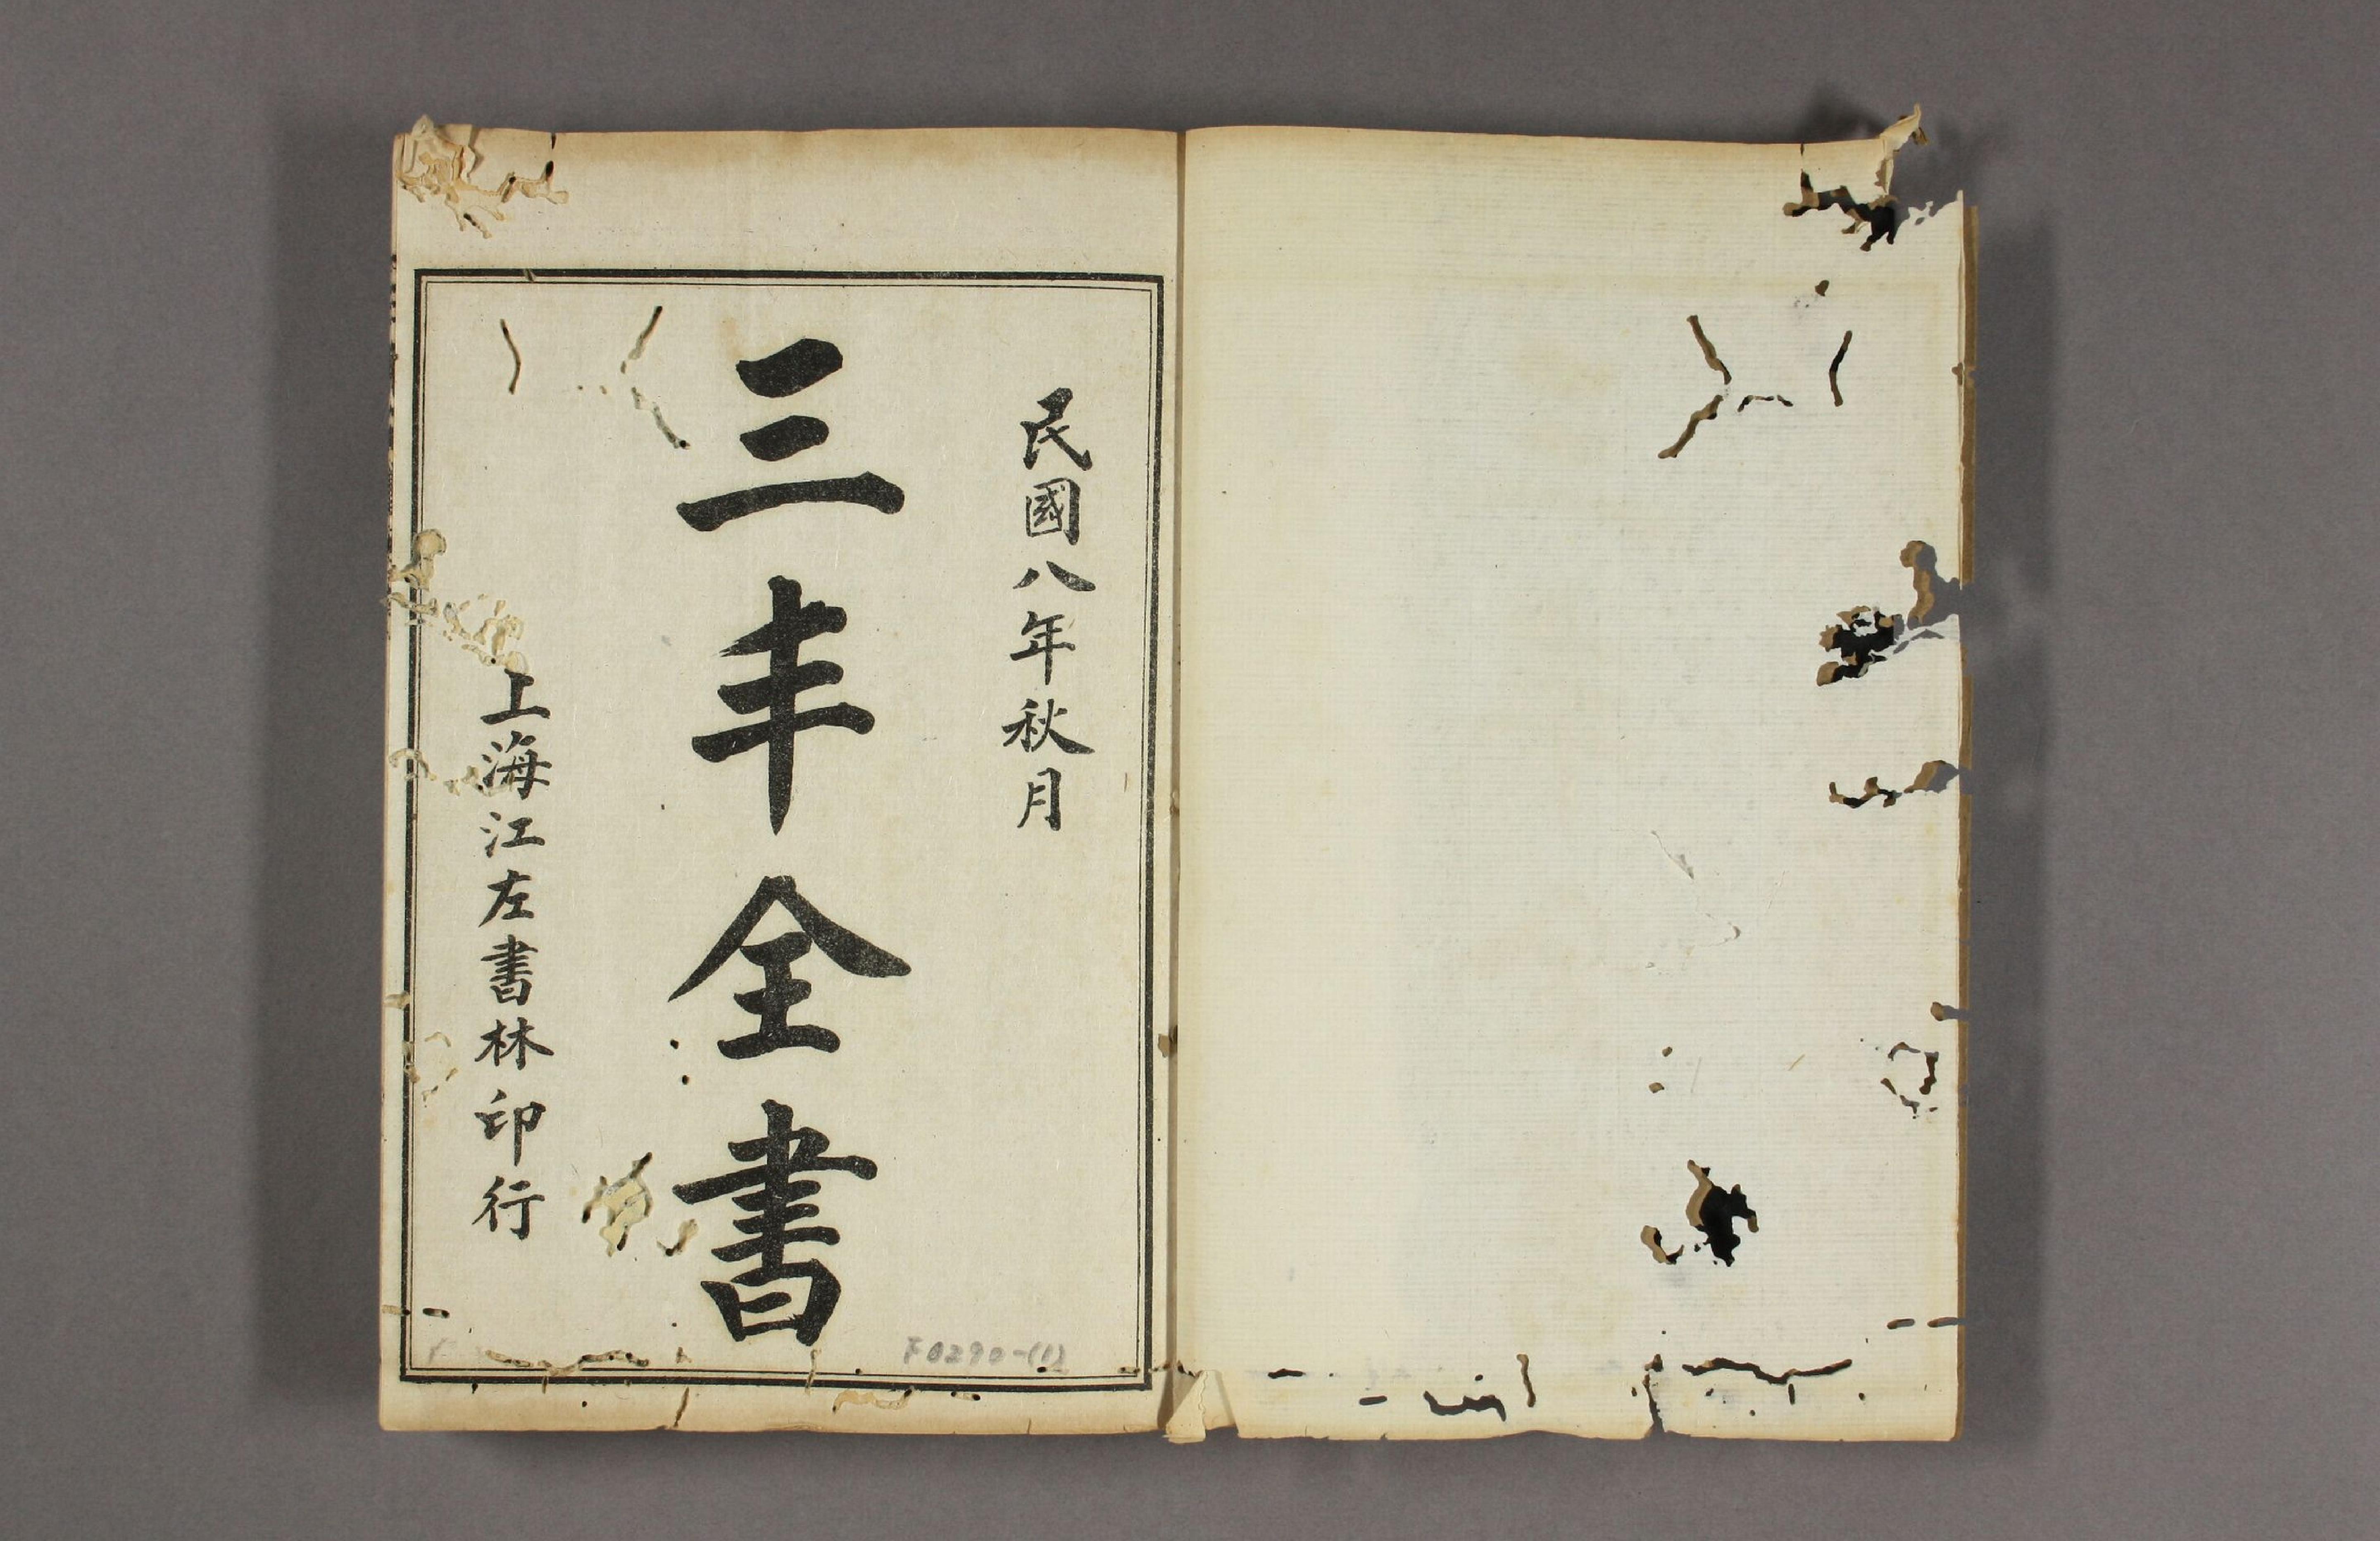 民國八年秋月
三丰全書
上海江左書林印行
F0290-(1)